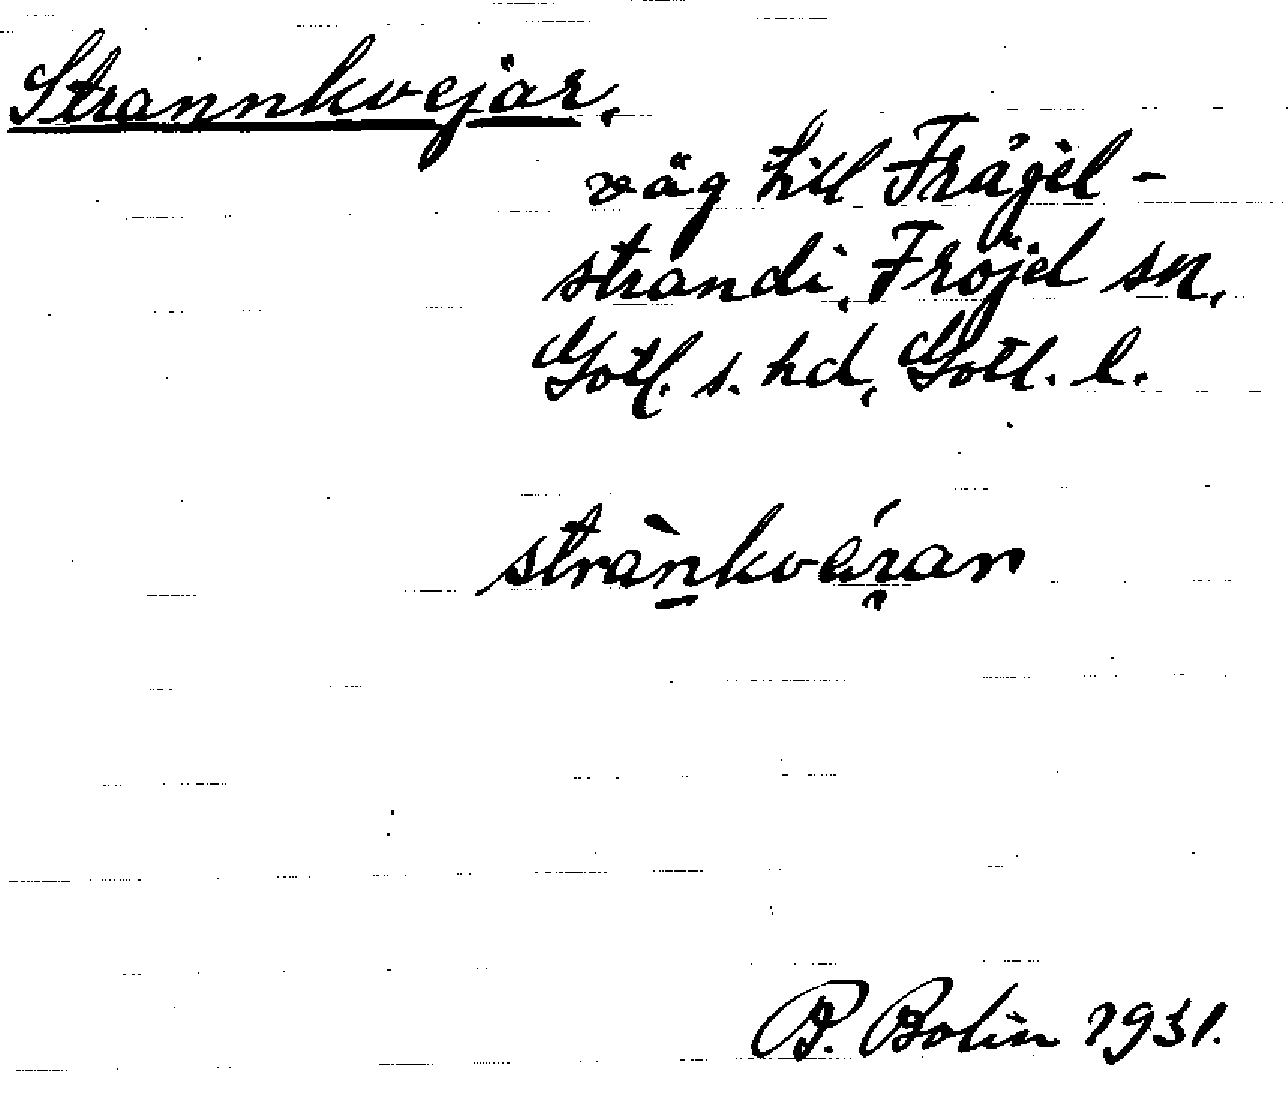 Strannkvejar,
väg till Fräjel-
strandi, Fröjel sn,
Gotl. s. hd, Gotl. l.
strànkváran
P. Bolin 1931.